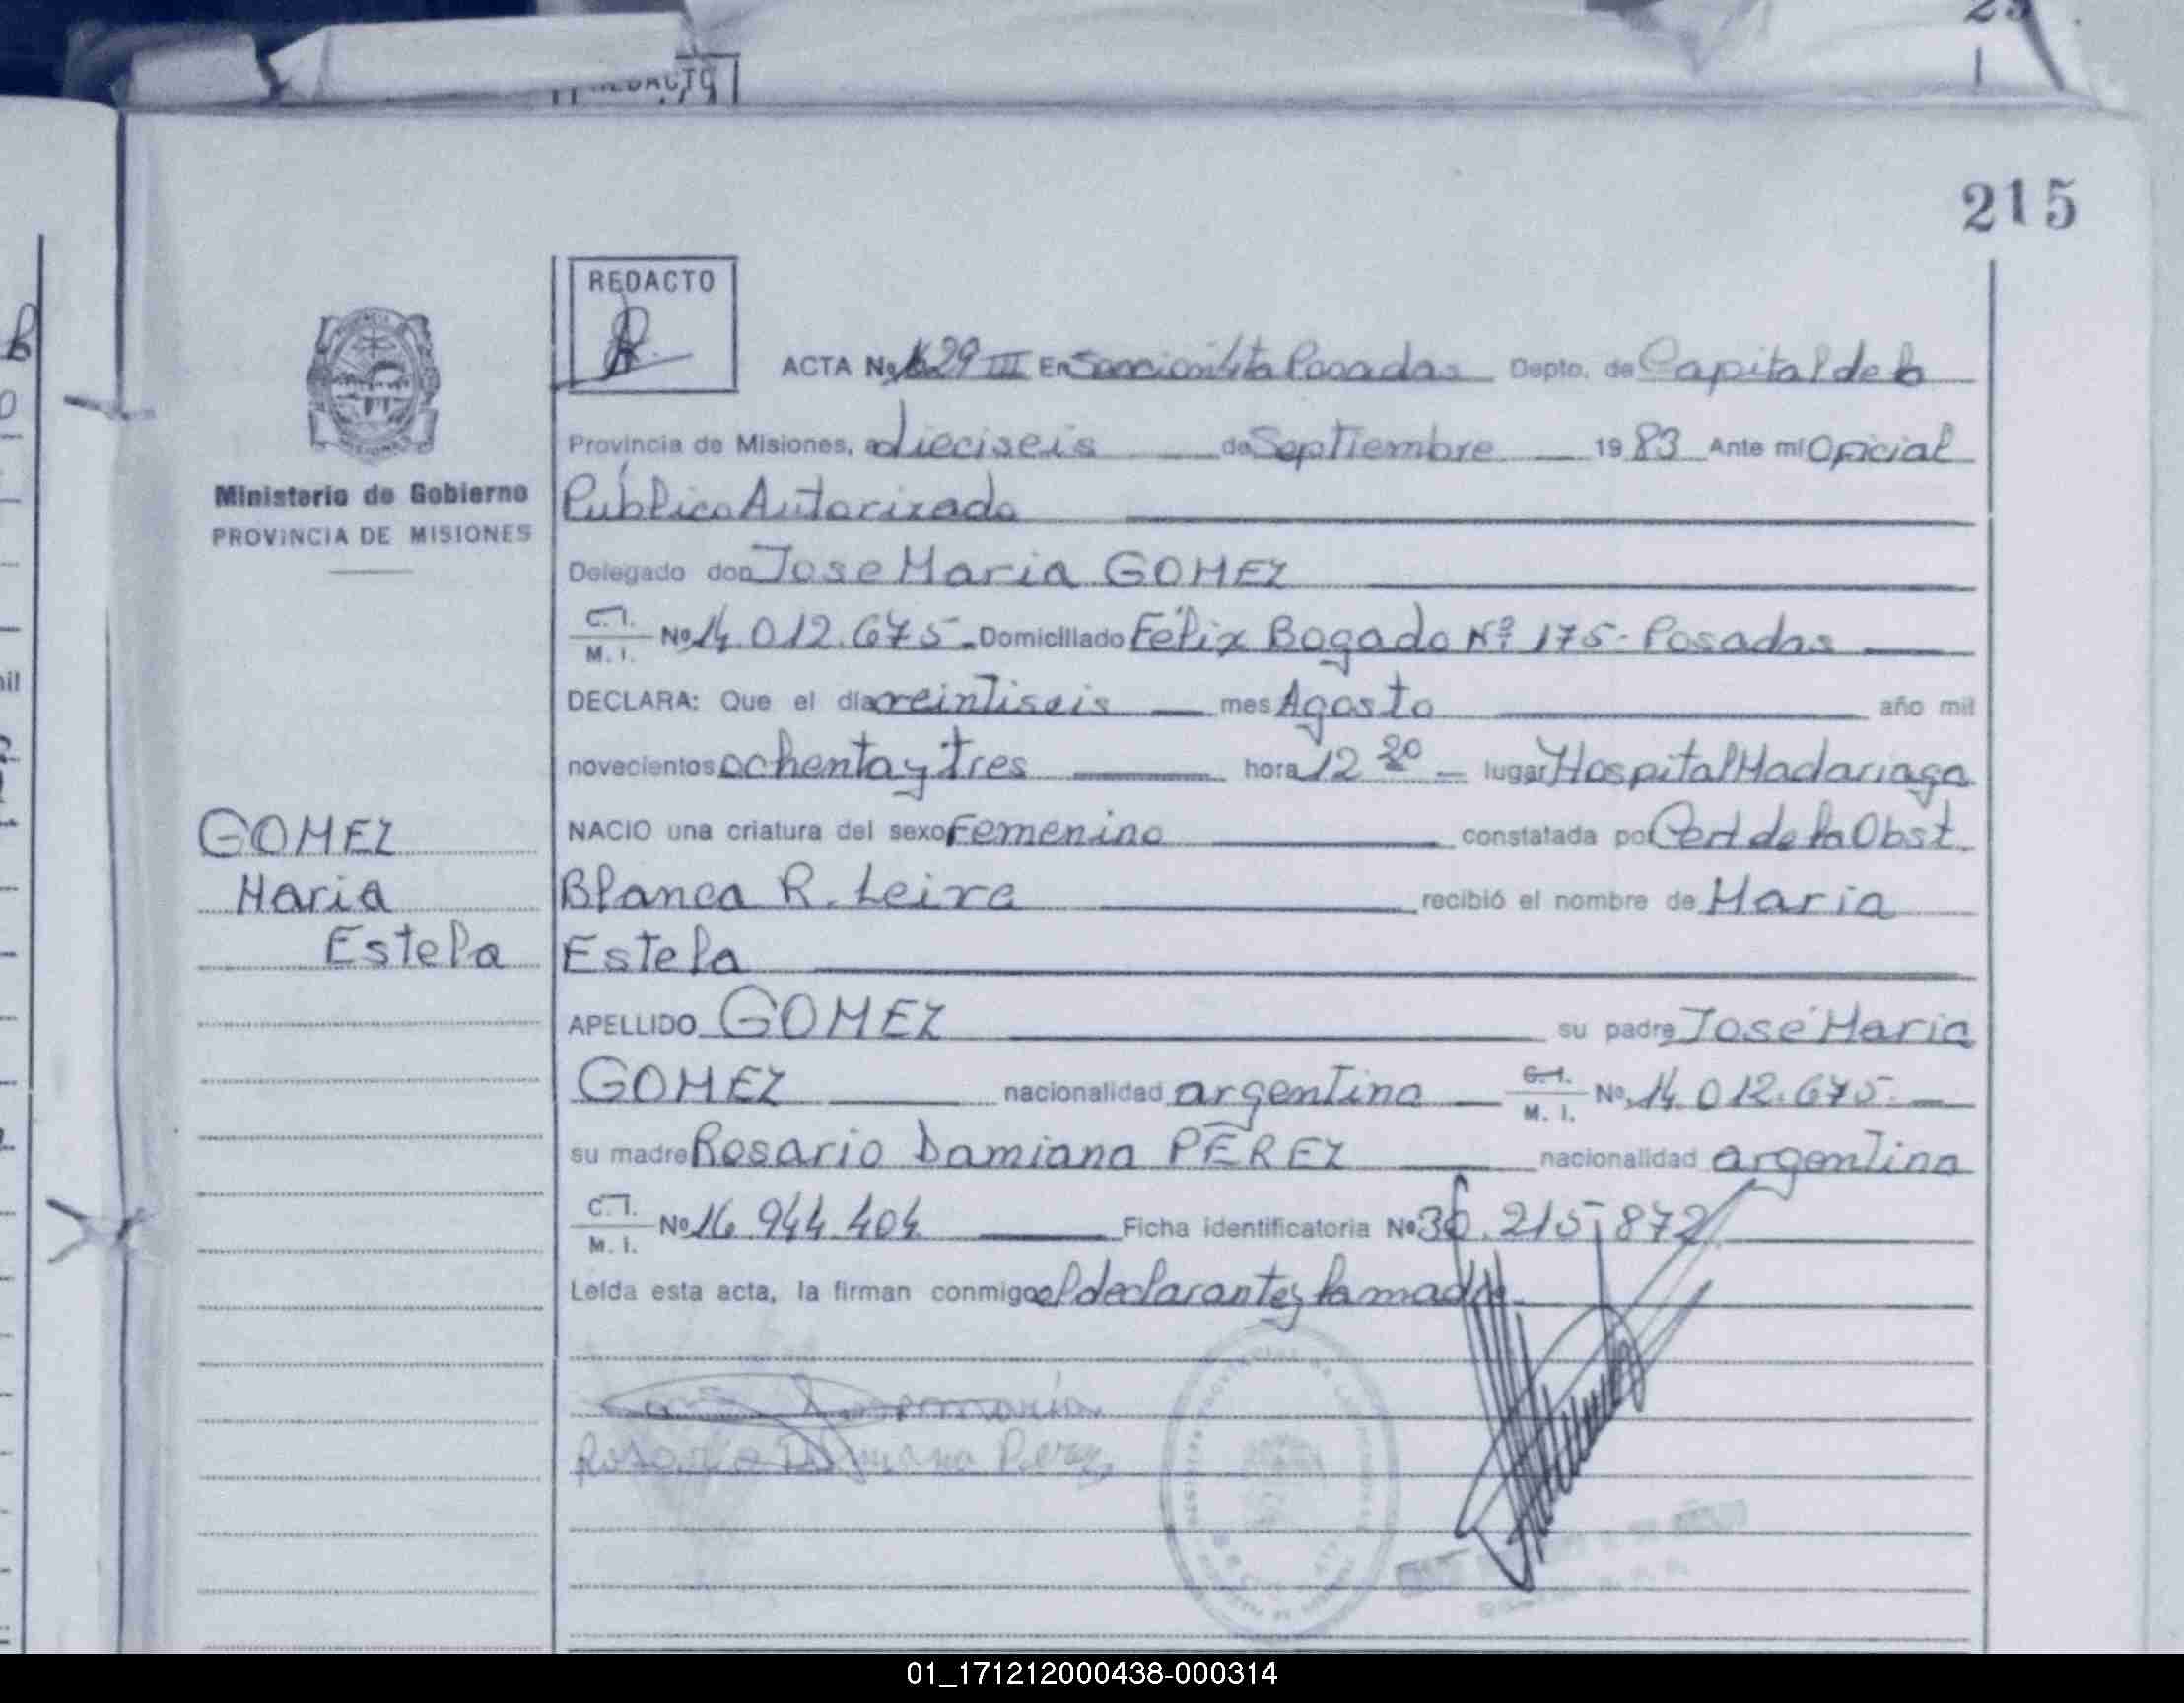 215
REDACTO
ACTA No 1629 III En Seccion 1ta Posadas Depto. de Capital de la
Provincia de Misiones, a dieciseis de Septiembre 1983 Ante mi Oficial
Público Autorizado
Ministerio de Gobierno
PROVINCIA DE MISIONES
Delegado don Jose Maria GOMEZ
C.I. M. I. No 14.012.675. Domiciliado Félix Bogado Nº 175- Posadas
DECLARA: Que el día veintiseis mes Agosto año mil
novecientos ochenta y tres hora 12 20 lugar Hospital Madariaga
GOMEZ
Maria
Estela
NACIO una criatura del sexo Femenino constatada por Cert de la Obst.
Blanca R. Leira recibió el nombre de Maria
Estela
APELLIDO GOMEZ su padre José Maria
GOMEZ nacionalidad argentina C.I. M. I. No 14.012.675.
su madre Rosario Damiana PÉREZ nacionalidad argentina
C.I. M. I. No 16.944.404 Ficha identificatoria No 30.215.872
Leída esta acta, la firman conmigo el declarante y la madre
Rosario Damiana Perez
01_171212000438-000314